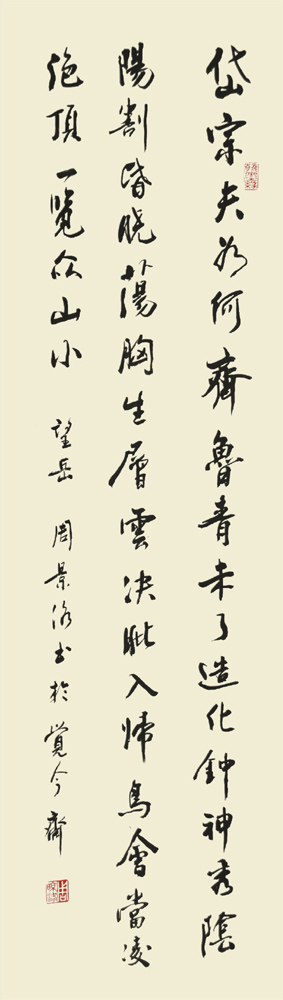 岱宗夫为何齊魯青未了造化钟神秀陰
陽割昏晓蕩胸生層雲决眦入帰鳥會當凌
绝頂一覽众山小 望岳 周景洛书於覺今齋